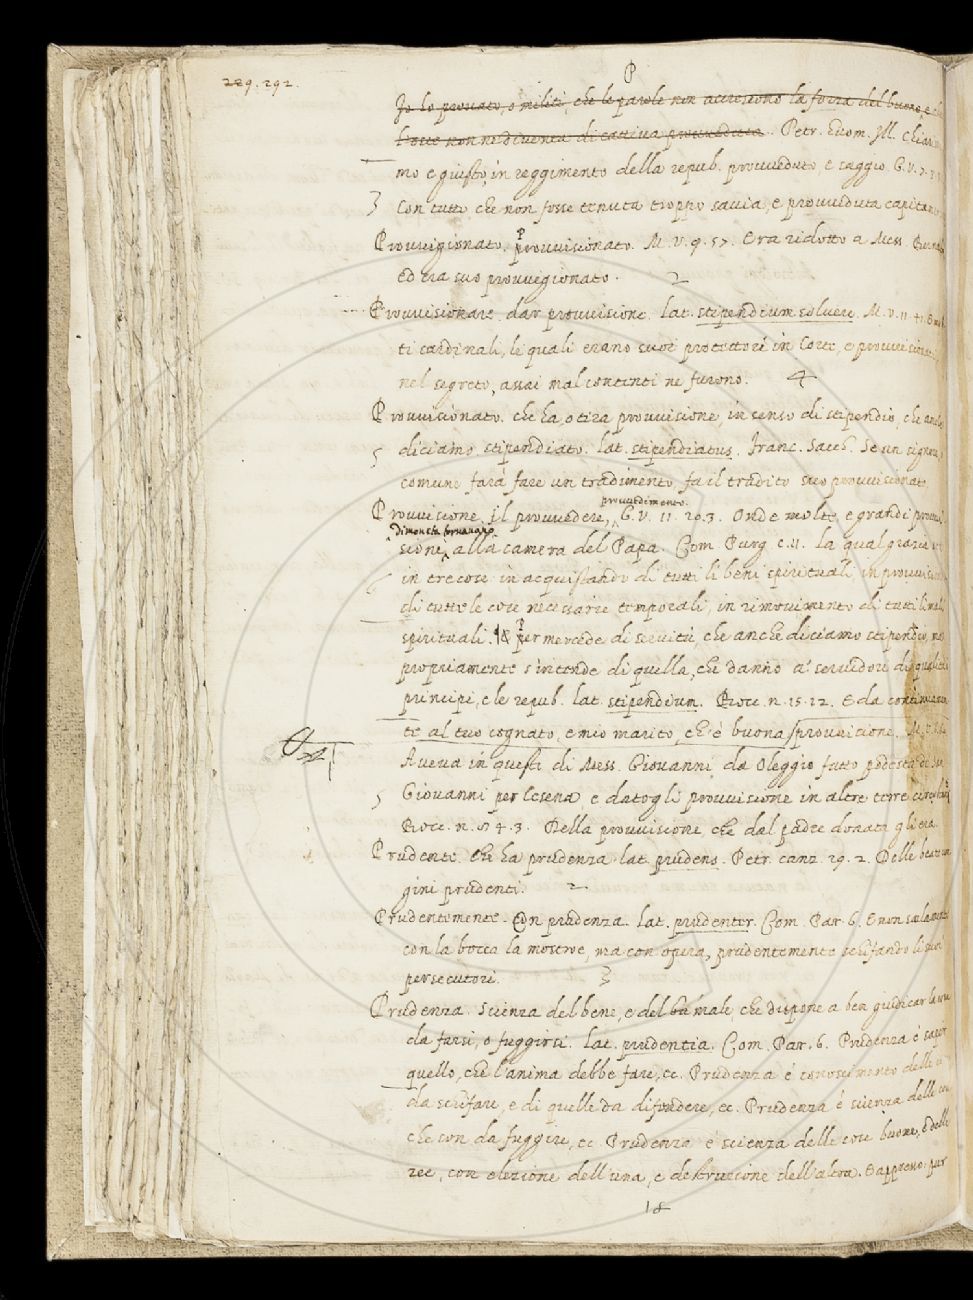 229. 292.
P
Io ho provato, o militi, che le parole non accrescono la forza del buono, e
l'oste non ne diventa di cattiva provveduta. Petr. Huom. Ill. Chiaris
mo e giusto, in reggimento della repub. provveduto, e saggio. G. V. 7.
3 Con tutto che non fosse tenuta troppo savia, e provveduta capitana
Provvigionato. provvisionato. M. V. 9. 57. Era ridotto a Mess.
ed era suo provvigionato. 2
Provvisionare. dar provvisione. Lat. stipendium solvere. M. V. 11. 41.
ti cardinali, le quali erano suoi protettori in Corte, e provvisionati
nel segreto, assai mal contenti ne furono. 4
Provvisionato. che ha, o tira provvisione, in senso di stipendio, che anche
5 diciamo stipendiato. Lat. stipendiatus. Franc. Sacch. Se un signore, o
comune farà fare un tradimento fa il tradito suo provvisionato
provvedimento.
Provvisione. Il provvedere, G. V. 11. 20. 3. Onde molte, e grandi provvi
dimoneta fornivano
sioni, alla camera del Papa. Com. Purg. c. 11. La qual grazia
6 in tre cose in acquistando di tutti li beni spirituali, in provvisione
di tutte le cose necessarie temporali, in rimovimento di tutti li mali
spirituali. 18 P per mercede di servitù, che anche diciamo stipendio, ma
propriamente s'intende di quella, che danno a' servidori di qualità
principi, e le repub. Lat. stipendium. Bocc. n. 15. 12. E da continuamen
te al tuo cognato, e mio marito, ch'è buona provvisione. M. V.
Aveva in questi dì Mess. Giovanni da Oleggio fatto podestà di
5 Giovanni per Cesena, e datogli provvisione in altre terre circostanti
Bocc. n. 84. 3. Della provvisione, che dal padre donata gli era.
Prudente. Che ha prudenza. Lat. prudens. Petr. canz. 29. 2. Delle beate ver
gini prudenti. 2
Prudentemente. Con prudenza. Lat. prudenter. Com. Par. 6. E non solamente
con la bocca la mostroe, ma con opera, prudentemente schifando li suoi
persecutori. 3
Prudenza. Scienza del bene, e del male, che dispone a ben giudicar le cose
da farsi, o fuggirsi. Lat. prudentia. Com. Par. 6. Prudenza è sapere
quello, che l'anima debbe fare, ec. Prudenza è conoscimento delle cose
da schifare, e di quelle da difendere, ec. Prudenza è scienza delle cose
che son da fuggire, ec. Prudenza è scienza delle cose buone, e delle
ree, con elezione dell'una, e destruzione dell'altra. E appresso. pur
18